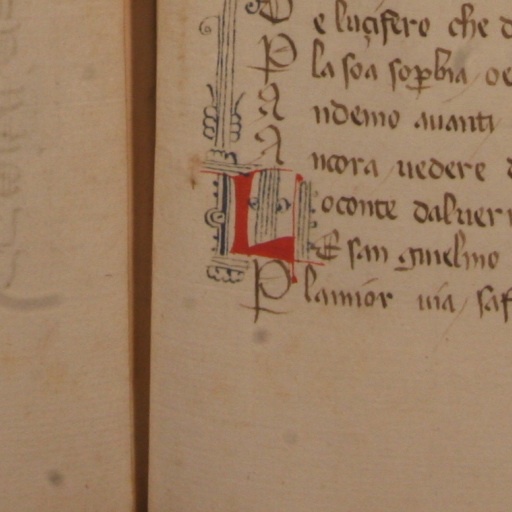 D e luçifero che d
P la soa soꝑbia oe
A ndemo auanti
A ncora uedere d
L oconte daluern
E san guielmo
P lamiór uia saf